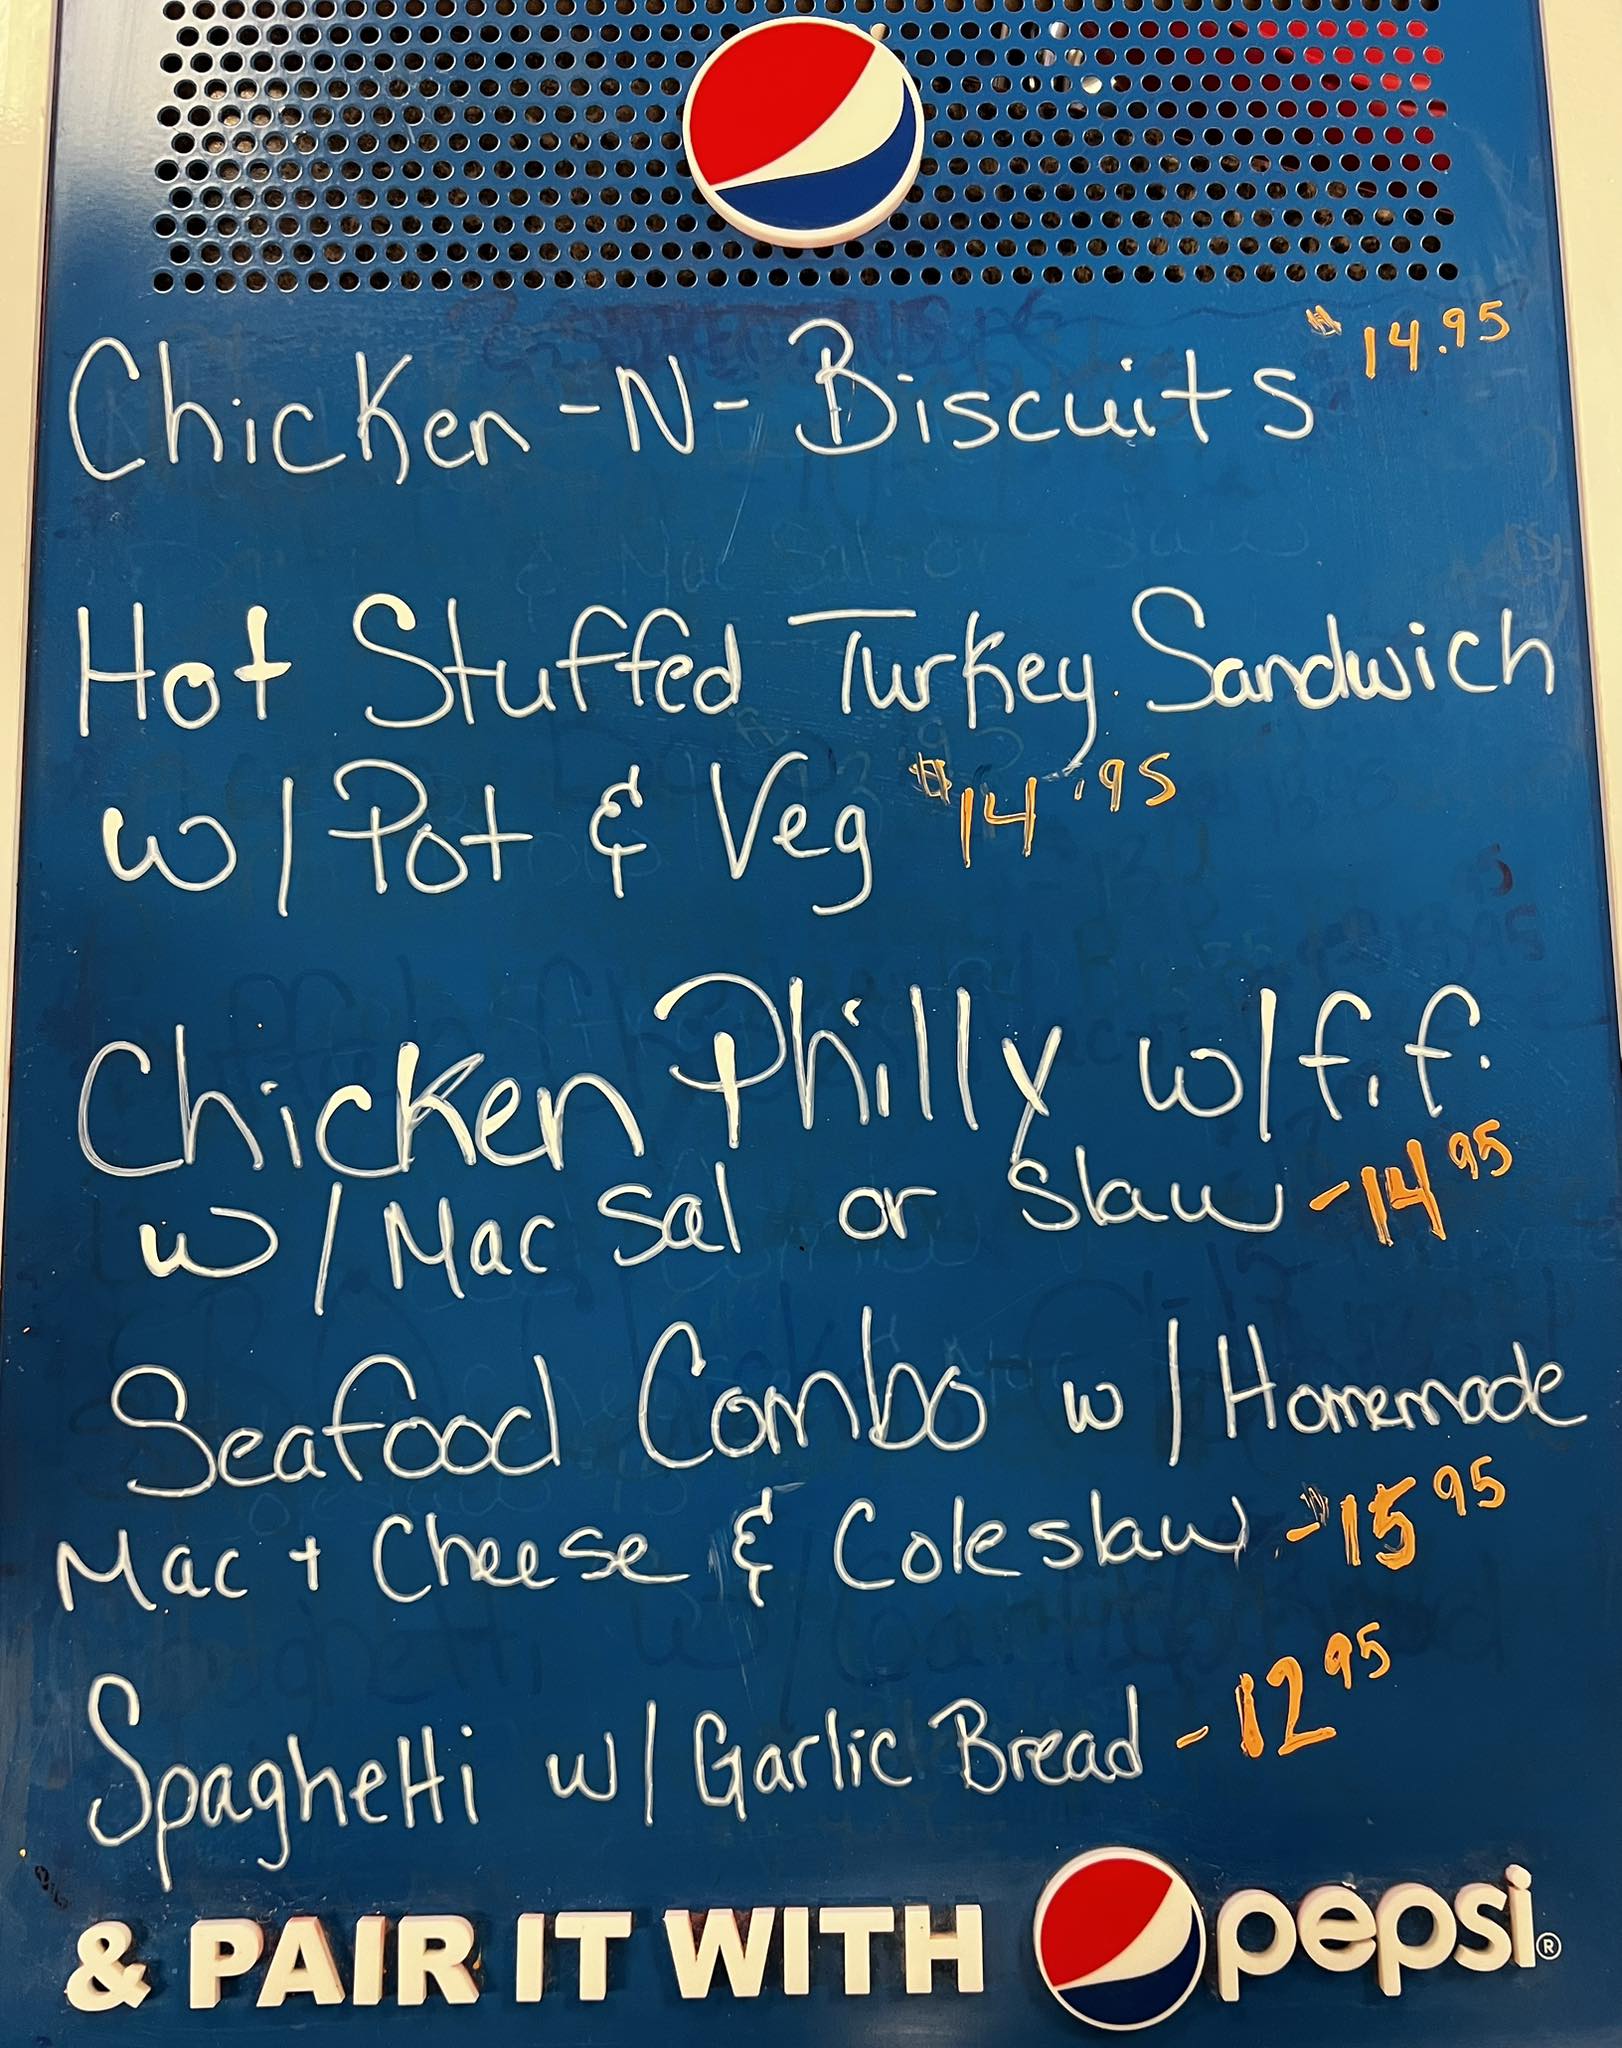 Chicken-N-Biscuits $14.95
Hot Stuffed Turkey Sandwich
w/ Pot & Veg $14.95
Chicken Philly w/ f.f.
w/ Mac Sal or Slaw - 14 95
Seafood Combo w/ Homemade
Mac + Cheese & Coleslaw - $15 95
Spaghetti w/ Garlic Bread - 12 95
& PAIR IT WITH pepsi®